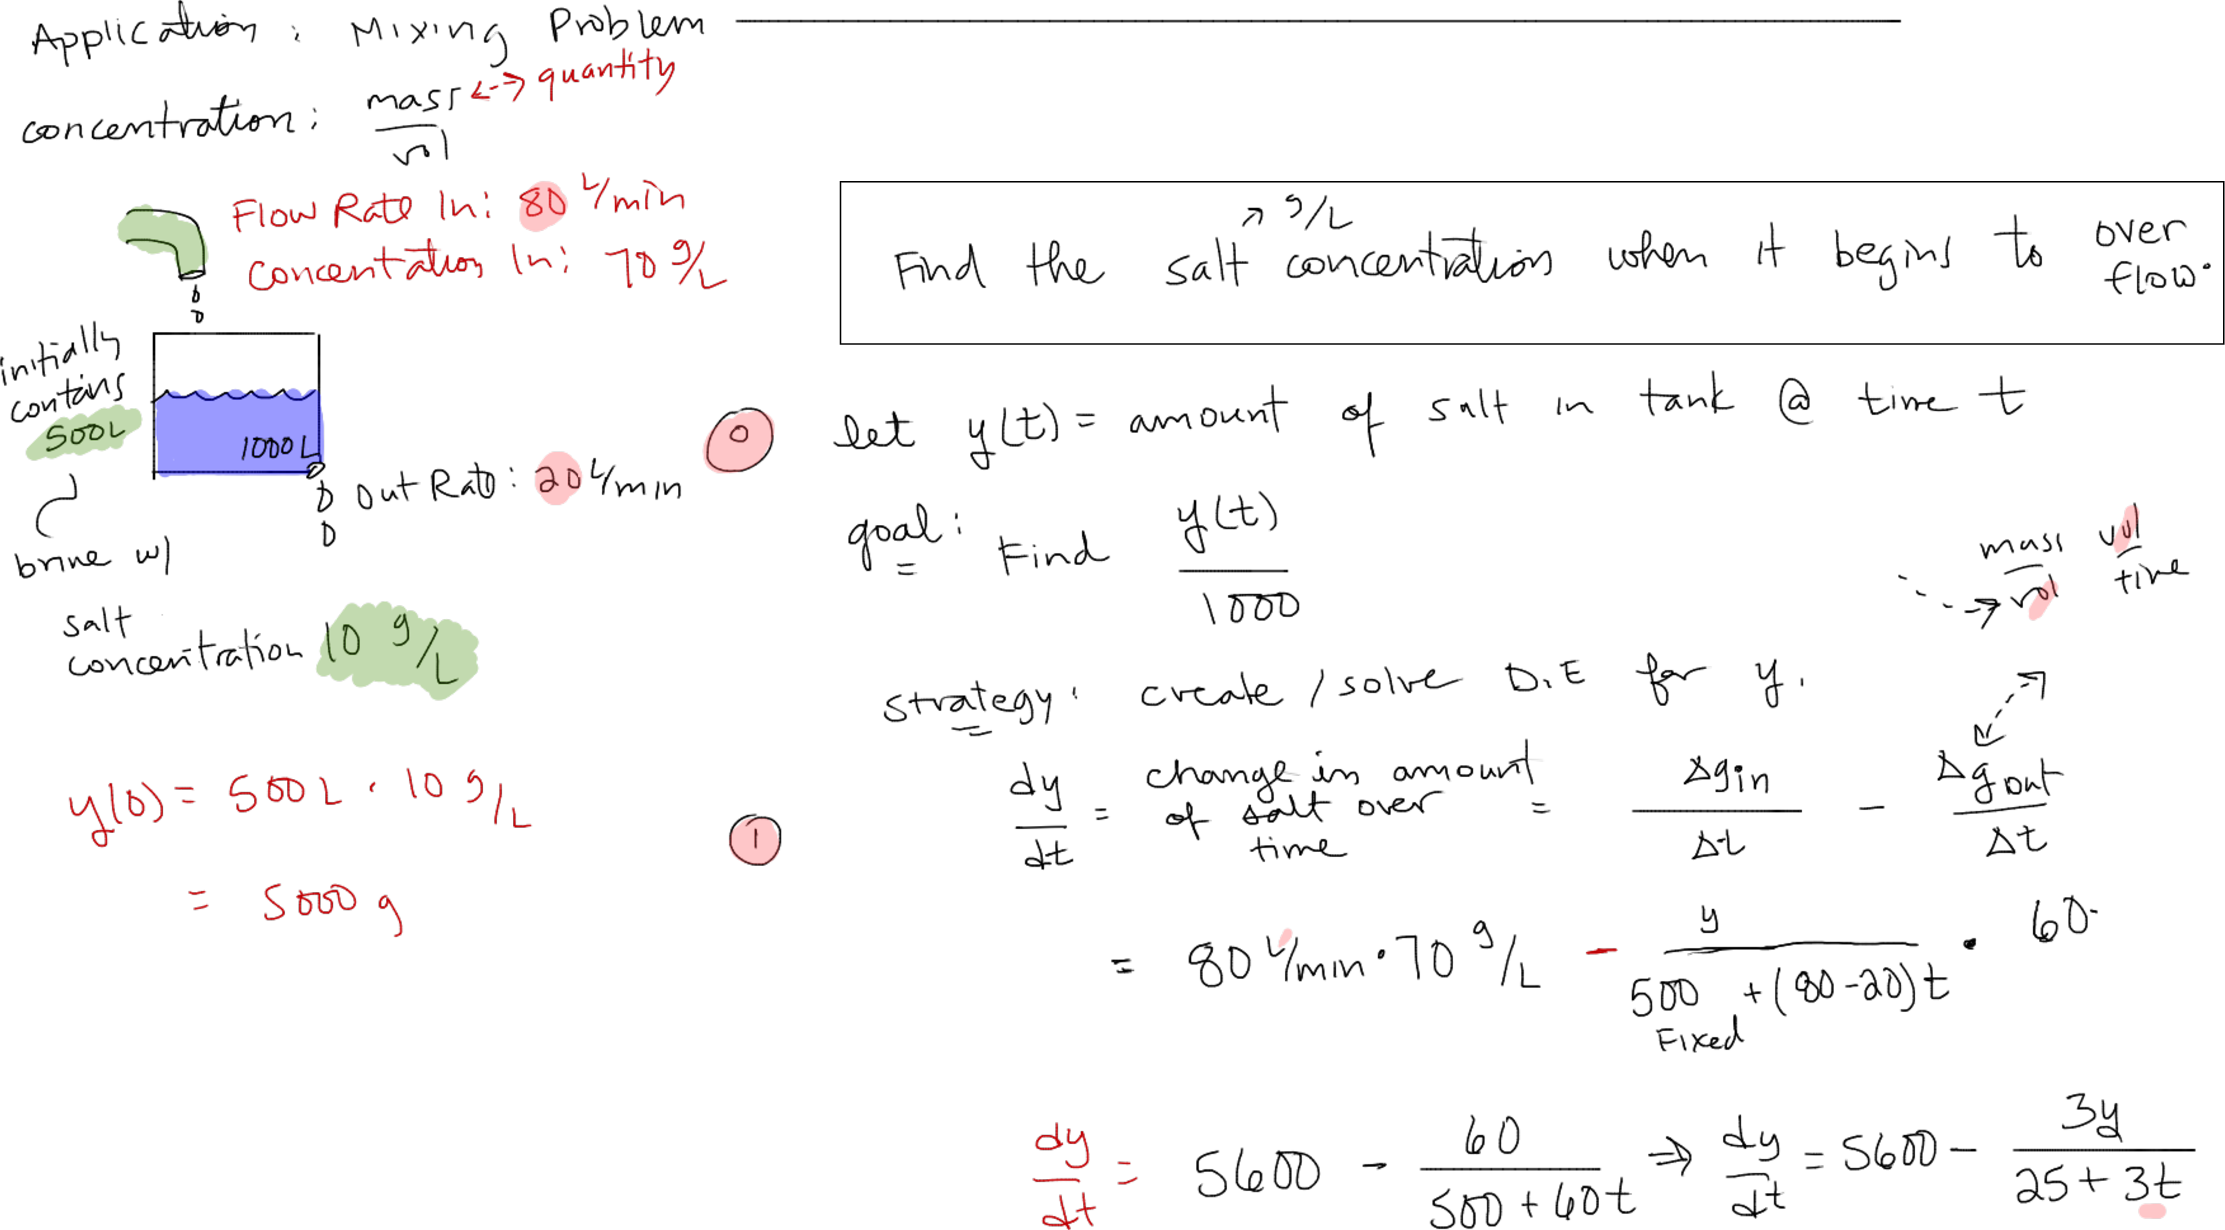 Application: Mixing Problem
concentration: mass/vol <-> quantity
Flow Rate In: 80 L/min
Concentation In: 70 g/L
initially
contains
500L
1000L
Out Rate: 20 L/min
brine w/
salt
concentration 10 g/L
y(0) = 500L · 10 g/L
= 5000 g
↗ g/L
Find the salt concentration when it begins to over
flow.
0
let y(t) = amount of salt in tank @ time t
goal: Find y(t)/1000
mass/vol vol/time
strategy: create / solve D.E for y.
1
dy/dt = change in amount of salt over time = Δg in/Δt - Δg out/Δt
= 80 L/min · 70 g/L - y/(500 + (80-20)t) · 60
Fixed
dy/dt = 5600 - 60/(500 + 60t) ⇒ dy/dt = 5600 - 3y/(25 + 3t)